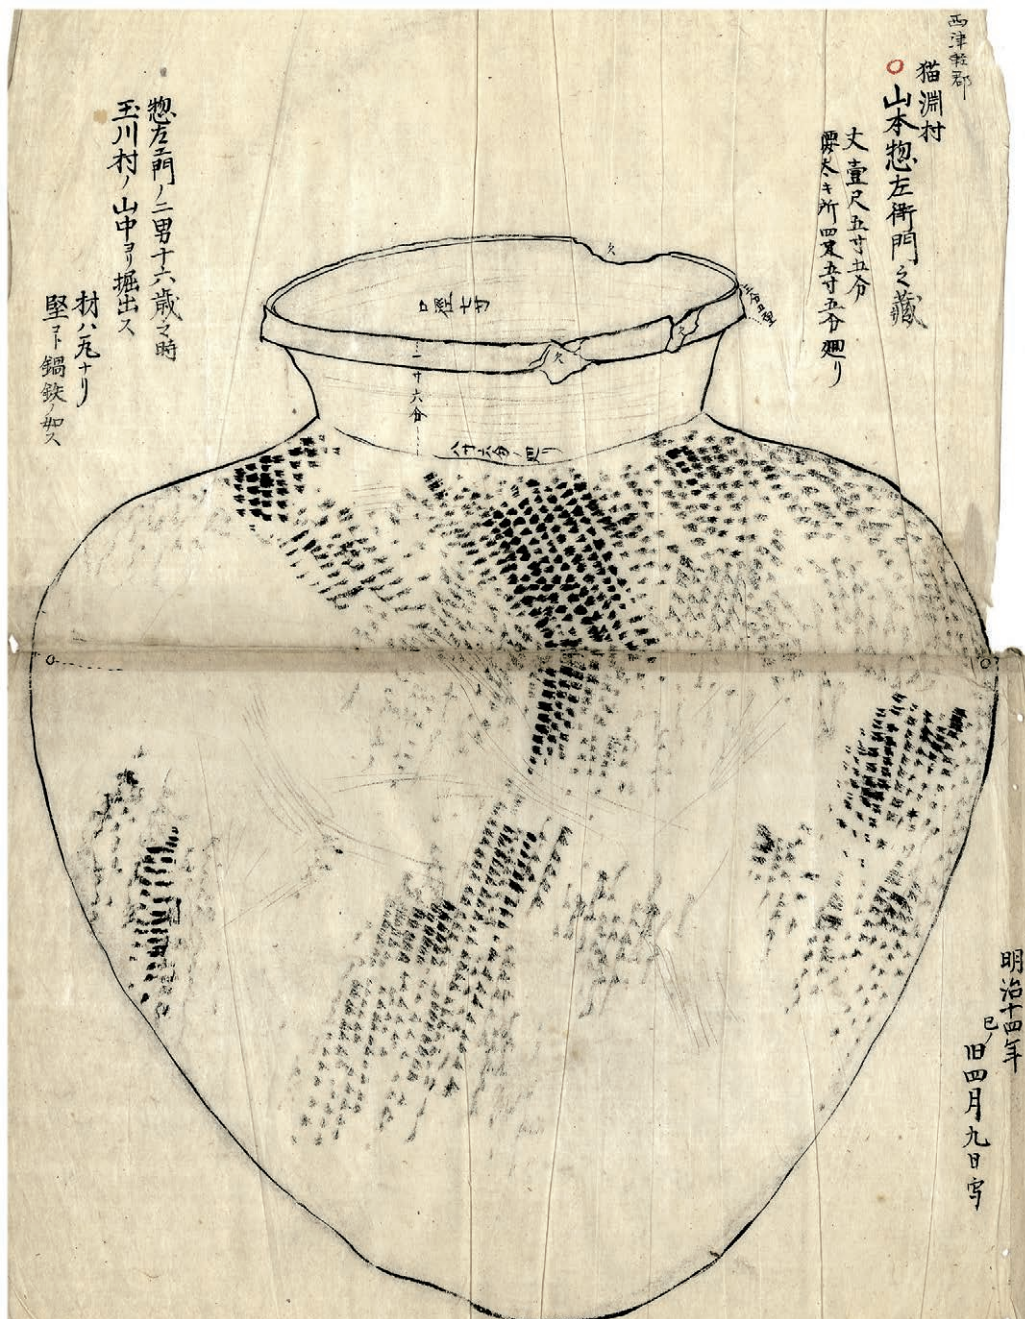 西津軽郡
猫淵村
○山本惣左衛門之蔵
丈壹尺五寸五分
太キ所四尺五寸五分廻り
口径七寸
一寸六分
欠
欠
欠
惣左エ門ノ二男十六歳之時
玉川村ノ山中ヨリ掘出ス
材ハ瓦ナリ
堅ヿ鍋鉄ノ如ス
明治十四年
巳ノ旧四月九日写